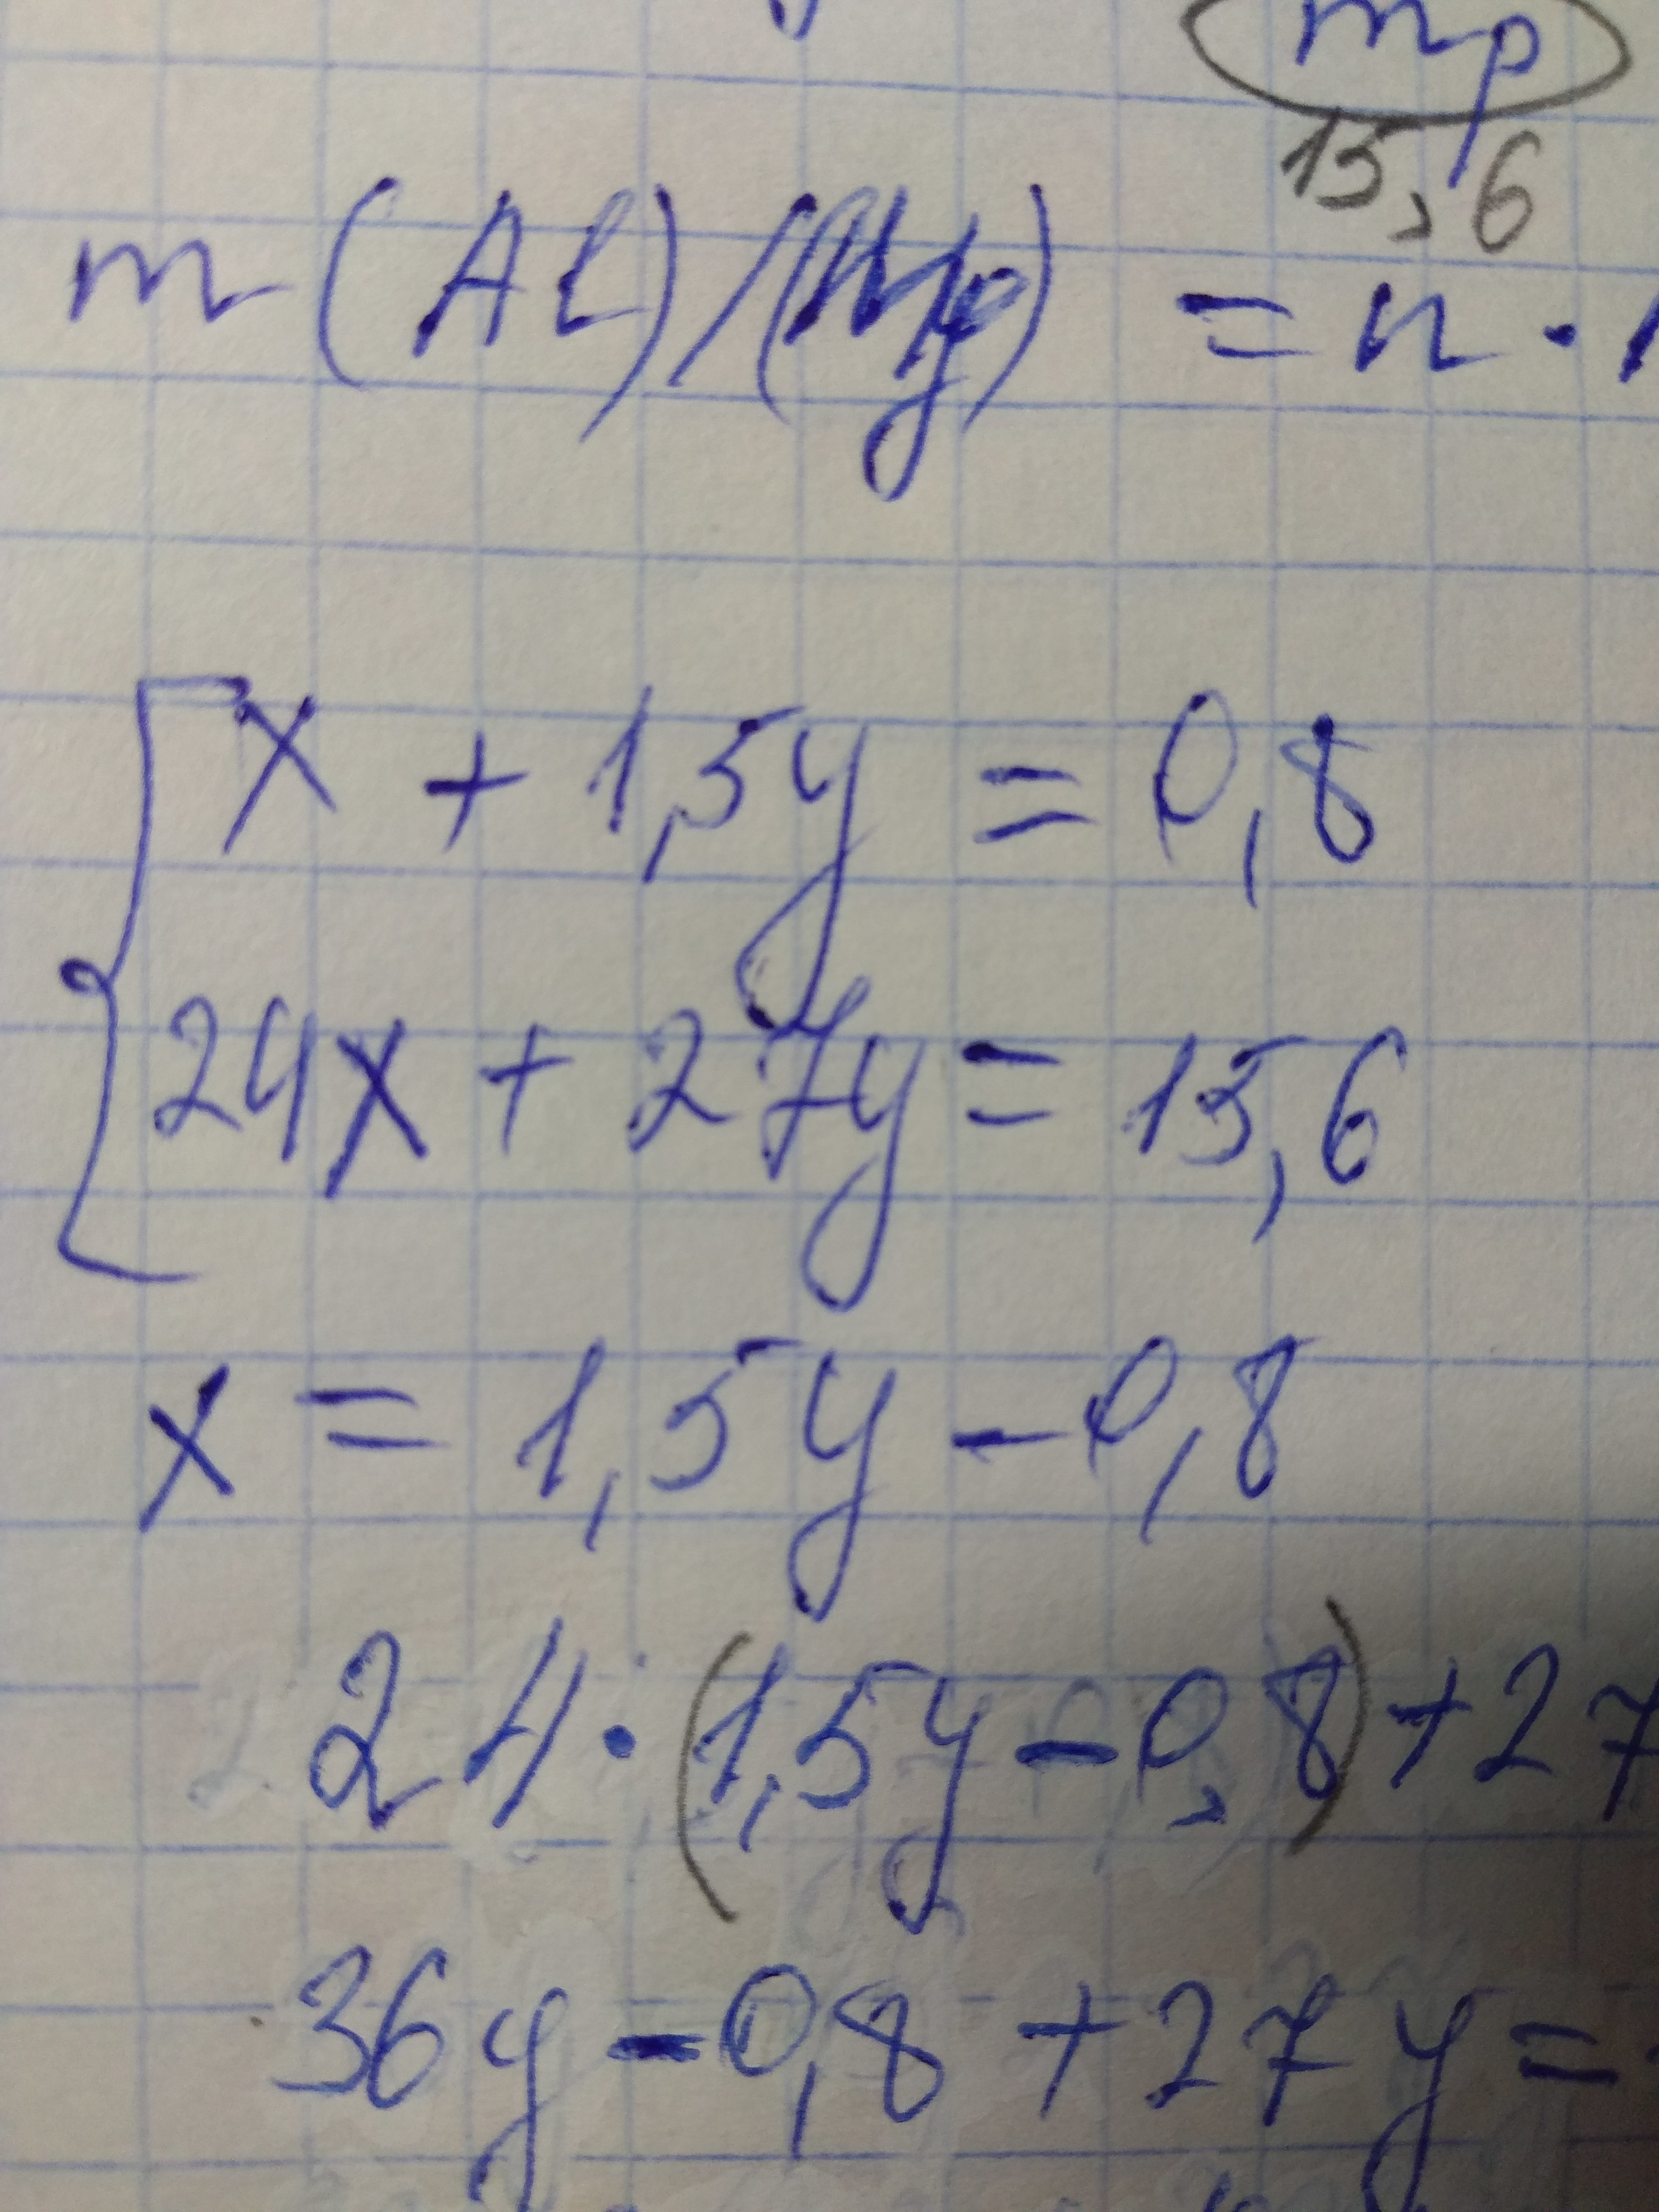 mp
15,6
m(Al)/(Mg) = n ·
x + 1,5y = 0,8
24x + 27y = 15,6
x = 1,5y - 0,8
24·(1,5y - 0,8) + 27
36y - 0,8 + 27y =